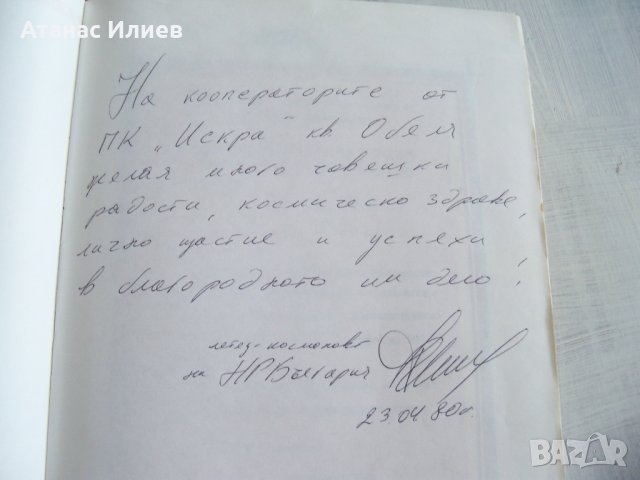 Атанас Илиев
На кооператорите от
ПК „Искра“ кв. Обеля
желая много човешки
радости, космическо здраве,
лично щастие и успехи
в благородното им дело!
летец-космонавт
на НРБългария
23.04.80г.
BAZAR